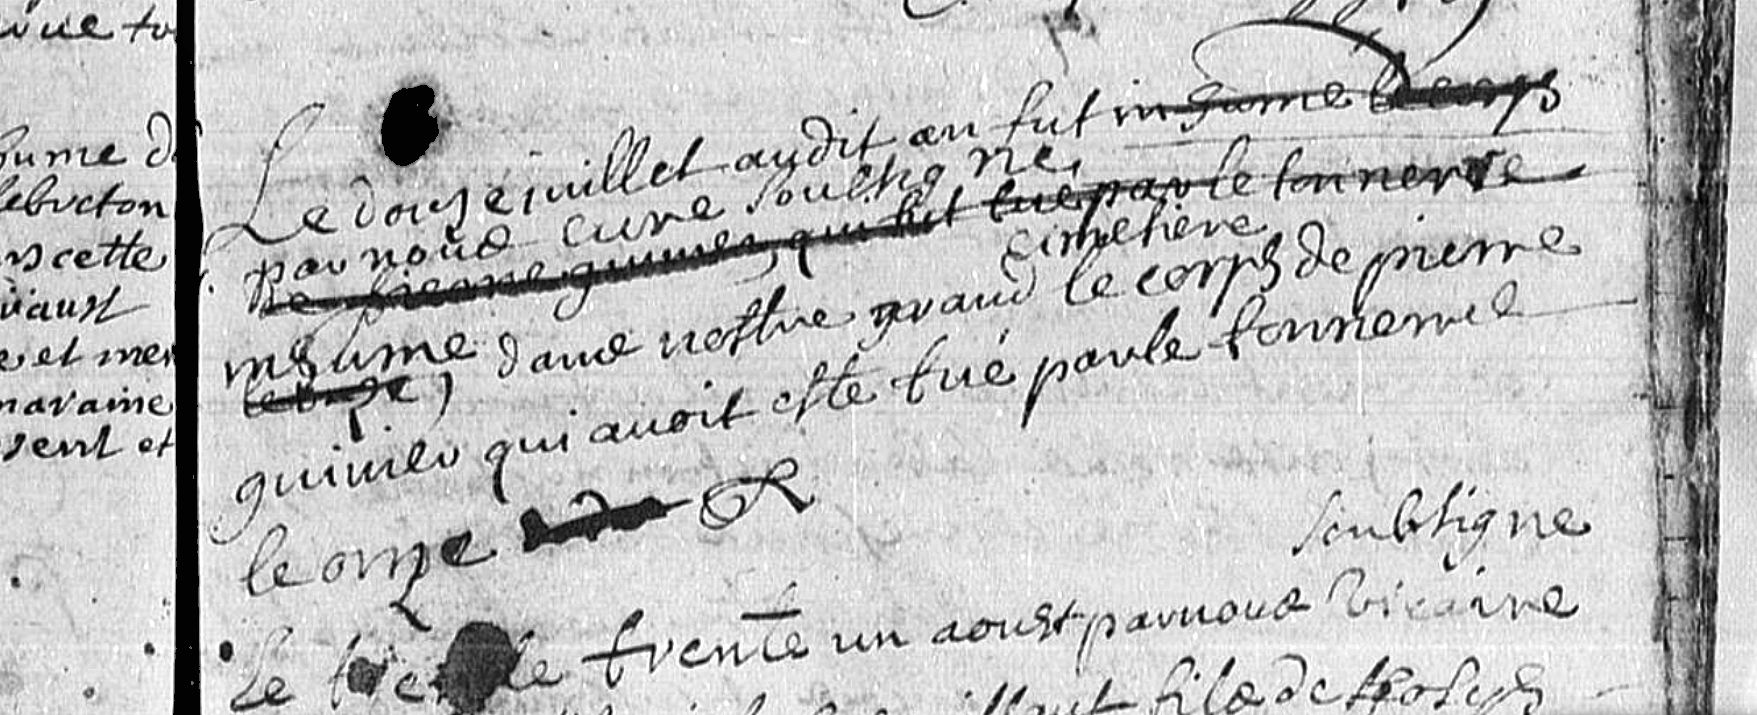 üe to
hume d
lebreton
ns cette
e et mer
maraine
sent et
Le douze juillet audit an fut inhumé le corps
par nous curé soubsigné
de pierre guimer qui fut tué par le tonnerre
cimetière
inhumé dans nostre grand le corps de pierre
guimer qui avoit esté tué par le tonnerre
le onze
soubsigné
Le trente un aoust par nous vicaire
fils de